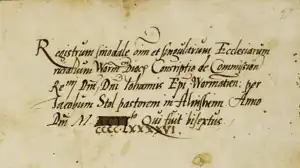 Registrum sinodale omn et singularum Ecclesiarum
ruralium Worm Dioces Conscriptio de Commissione
Rmi Dni Dni Iohannis Epi Wormatien: per
Iacobum Stol pastorem in Anno
Dni M
CCCC-LXXXXVI. Qui fuit bisextus.